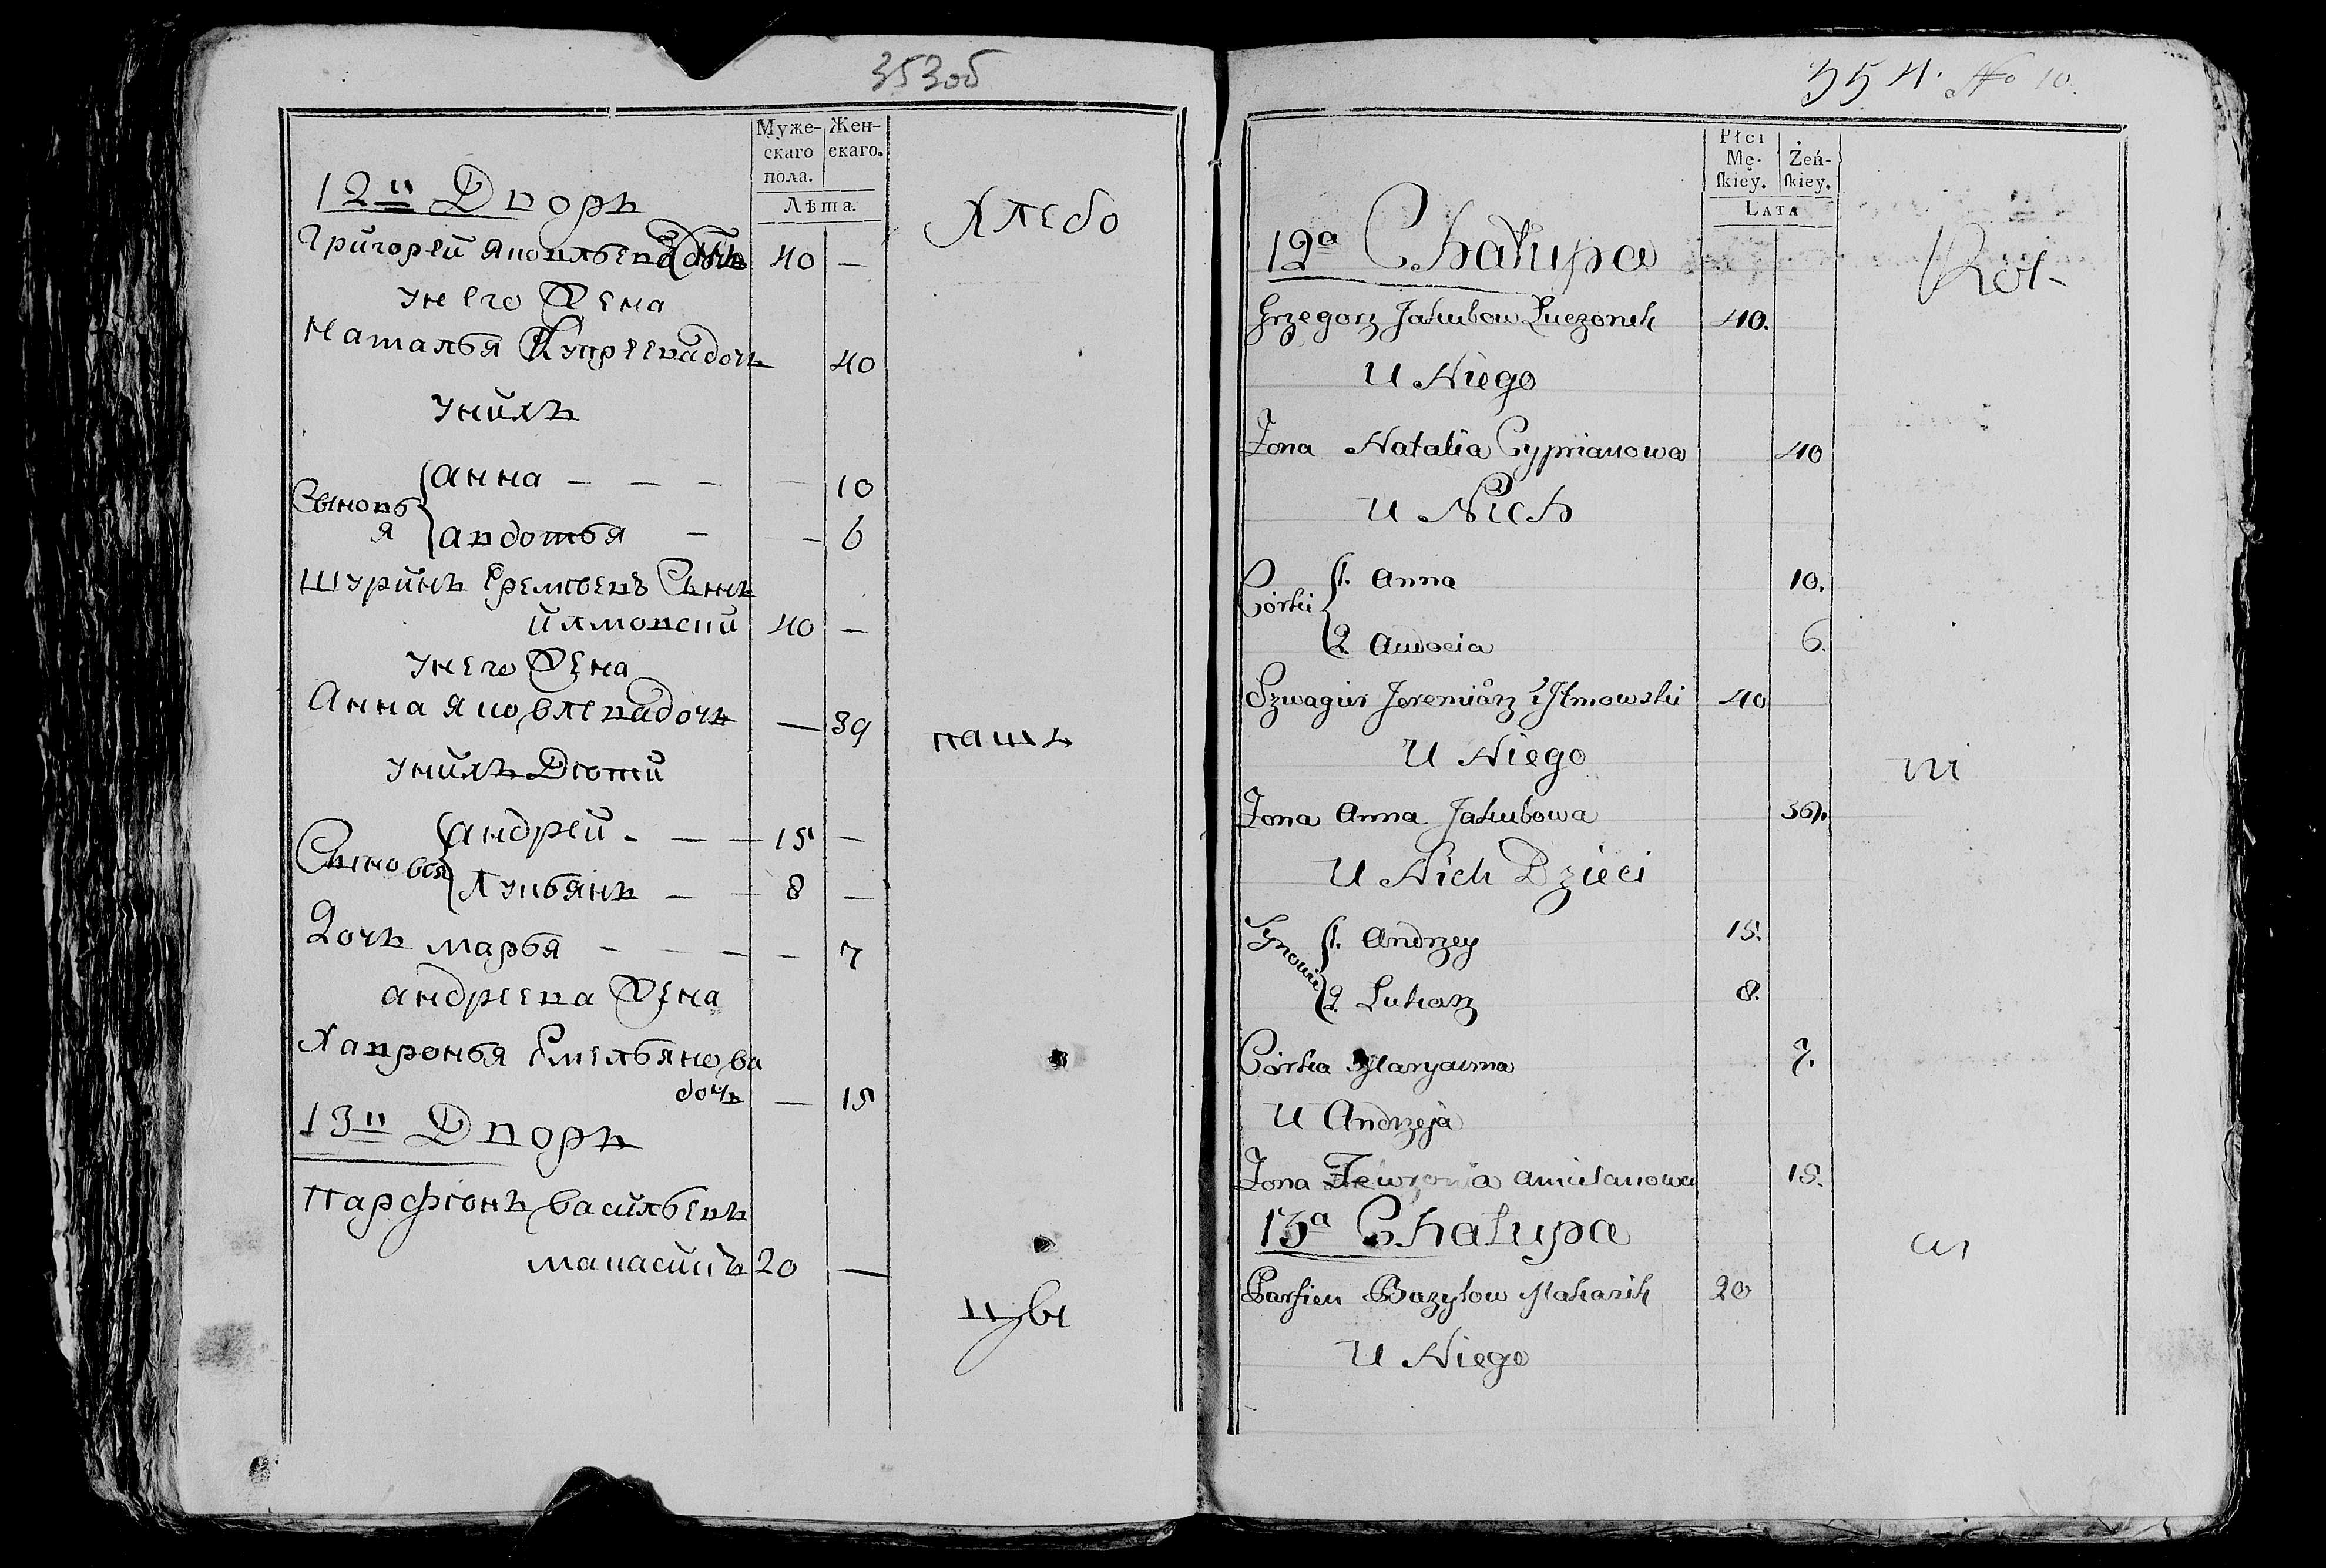 353об
Муже- Жен-
скаго скаго.
пола.
Лѣта.
12й Дворъ
Хлебо
Григорей Яковлевъ 40 —
У него Жена
Наталья Купреева дочь 40
У нихъ
Сыновь я
Анна — — — — 10
Авдотья — — 6
Шуринъ Еремѣевъ Сынъ
40 —
У него Жена
Анна Яковлева дочь — 39
пашъ
У нихъ Дѣти
Сыновья
Андрей - — — 15 —
Лукьянъ — — 8 —
Дочь Марья — — — — 7
Андреева Жена
Хавронья Емельянова
дочь — 15
13й Дворъ
Парфіонъ Васильевъ
20 —
цы
354. No 10.
Płci
Mę- Żeń-
skiey. skiey.
LATA
12a Chałupa
Rol-
Grzegorz Jakubow Łuczonek 40.
U Niego
Żona Natalia Cyprianowa 40
U Nich
Córki
1. Anna 10.
2. Audocia 6.
Szwagier Jeremiasz Iłmowski 40
U Niego
ni
Żona Anna Jakubowa 39.
U Nich Dzieci
Synowie
1. Andrzey 15.
2. Łukasz 8.
Córka Maryanna 7.
U Andrzeja
Żona 15.
13a Chałupa
cy
Parfien Bazylow Makasik 20
U Niego